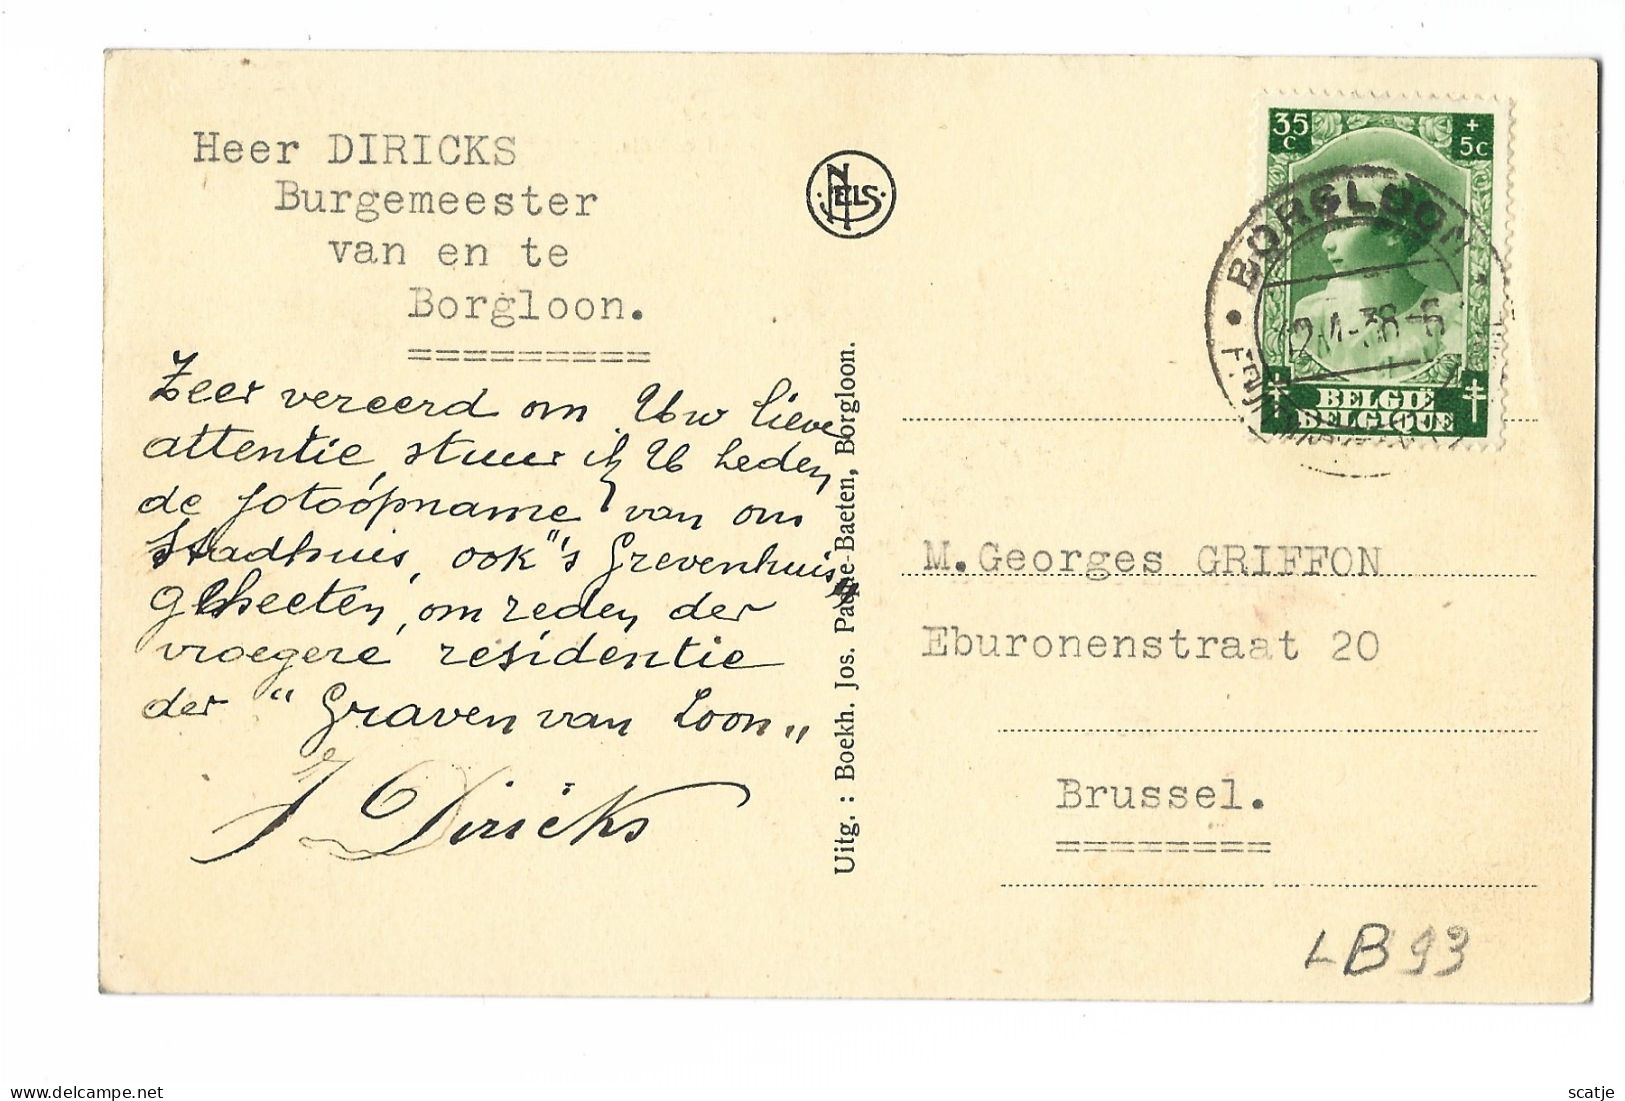 Heer DIRICKS
Burgemeester
van en te
Borgloon.
==========
Zeer vereerd om Uw lieve
attentie, stuur ik U heden
de fotoópname van ons
Stadhuis, ook "'s Grevenhuis"
geheeten, om reden der
vroegere residentie
der "Graven van Loon"
J Diricks
NELS
Uitg. : Boekh. Jos. Paque-Baeten, Borgloon.
35 c + 5c
BORGLOON
-38
BELGIË
BELGIQUE
M. Georges GRIFFON
Eburonenstraat 20
Brussel.
=========
LB93
scatje